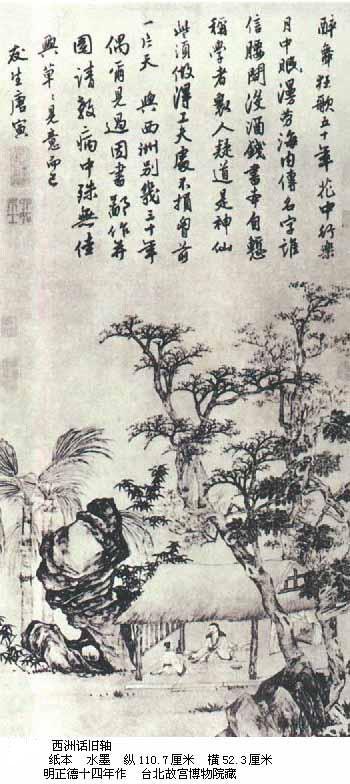 醉舞狂歌五十年花中行樂
月中眠漫勞海內傳名字誰
信腰間沒酒錢書本自慙
稱學者衆人疑道是神仙
些須做得工夫處不損胸前
一片天 與西洲別幾三十年
偶爾見過因書鄙作并
圖請教病中殊無佳
興草〻見意而已
友生唐寅
西洲话旧轴
纸本 水墨 纵110.7厘米 横52.3厘米
明正德十四年作 台北故宫博物院藏